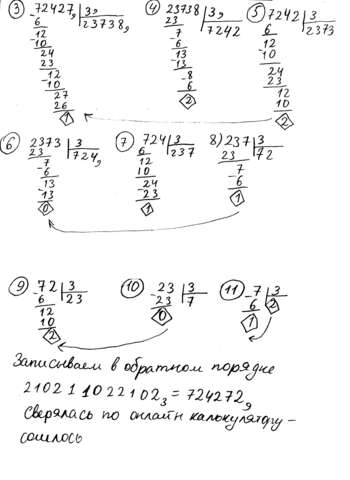 ③ 72427₉ | 3₉ ④ 23738 | 3₉ ⑤ 7242 | 3
-6 23738₉ 23 7242 6 2373
12 -7 12
-10 6 -10
24 13 24
23 13 23
-12 -8 12
-10 6 10
27 2 2
26
1
⑥ 2373 | 3 ⑦ 724 | 3 8) 237 | 3
23 724₉ 6 237 23 72
7 12 7
-6 10 -6
13 -24 1
-13 -23
0 1
⑨ -72 | 3 ⑩ -23 | 3 ⑪ -7 | 3
6 23 23 7 6 2
12 0 1
10
2
Записываем в обратном порядке
210211022102₃ = 724272₉
Сверялась по онлайн калькулятору –
сошлось